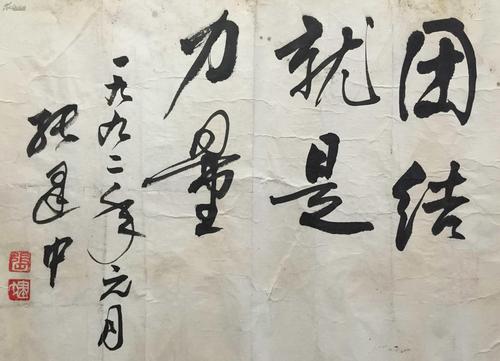 团结
就是
力量
一九九二年元月
张建中